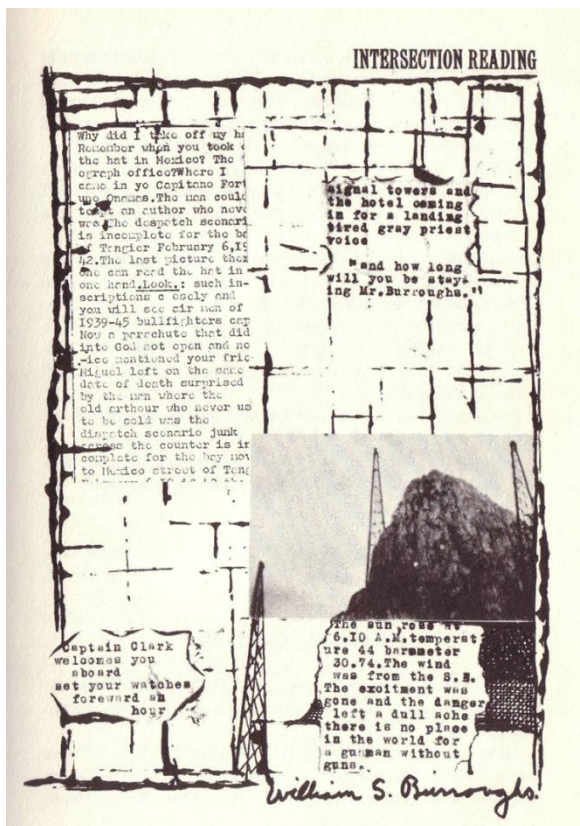 INTERSECTION READING
Why did I take off my ha
Remember when you took o
the hat in Mexico? The
ograph office?Where I
came in yo Capitano Fort
uno Onamas.The man could
tempt an author who neve
was.The despatch scenari
is incomplete for the bo
of Tangier February 6,19
42.The last picture ther
one can read the hat in
one hand.Look.: such in-
scriptions c osely and
you will see air men of
1939-45 bullfighters cap
Now a parachute that did
into God not open and no
-ico mentioned your frie
Miguel left on the same
date of death surprised
by the man where the
old arthour who never us
to be sold was the
dispatch scenario junk
across the counter is in
complete for the boy now
to Mexico street of Tang
signal towers and
the hotel coming
in for a landing
tired gray priest
voice
"and how long
will you be stay-
ing Mr.Burroughs."
Captain Clark
welcomes you
aboard
set your watches
foreward an
hour
The sun rose at
6.10 A.M.temperat
ure 44 barometer
30.74.The wind
was from the S.E.
The exoitment was
gone and the danger
left a dull ache
there is no place
in the world for
a gunman without
guns.
William S. Burroughs.